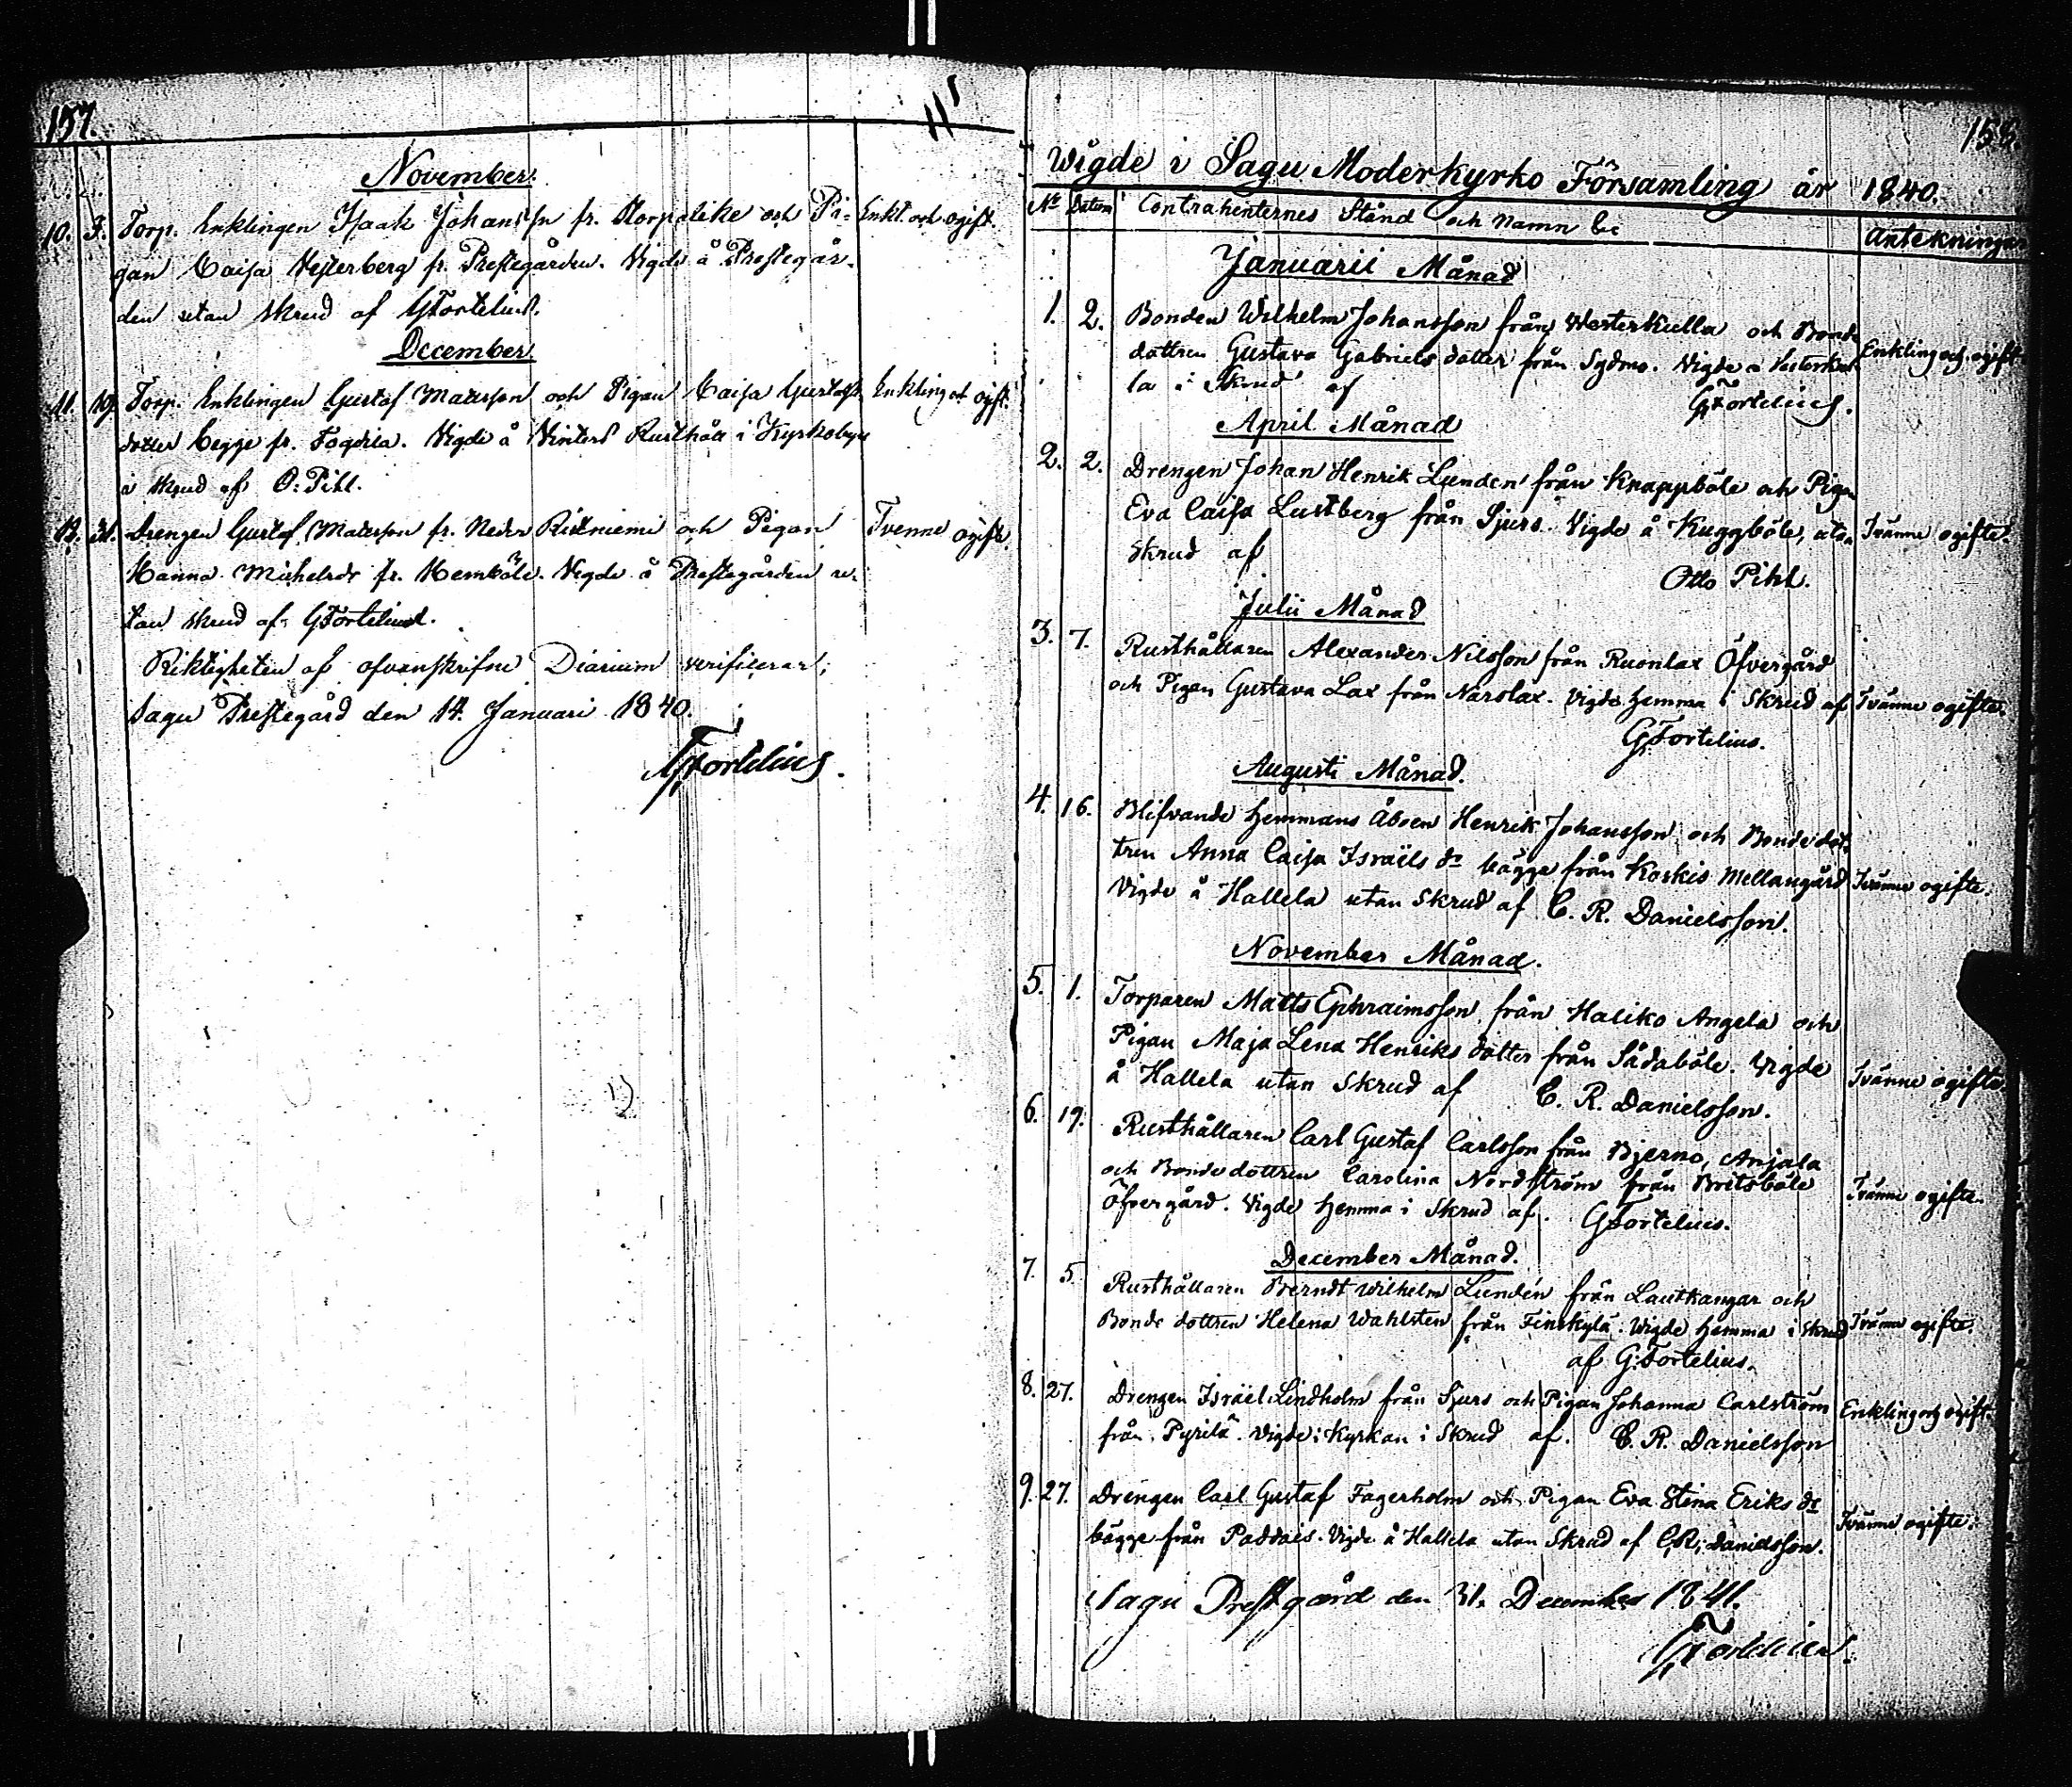 157.
November.
10. 3. Torp. Enklingen Isaak Johanss'n fr. Storpelike och Pi- Enkl. och ogift.
gan Caisa Vesterberg fr. Prestegården. Vigde å Prestegår-
den utan skrud af GFortelius.
December.
11. Torp. Enklingen Gustaf Matsson och Pigan Caisa Gustafs Enkling och ogift.
dotter begge fr. Fogdila. Vigde å Vinters Rusthåll i Kyrkobyn
i skrud af O: Pihl.
12. 31. Drengen Gustaf Matsson fr. Nedre Ristniemi och Pigan Tvenne ogifte.
Hanna Michelsdr fr. Kemböle. Vigde å Prestegården u-
tan skrud af GFortelius.
Riktigheten af ofvanskrifne Diarium verificerar;
Sagu Prestegård den 14. Januari 1840.
GFortelius.
158.
Wigde i Sagu Moderkyrko Församling år 1840.
No Datum Contrahenternes Stånd och Namn &c Antekningar
Januarii Månad
1. 2. Bonden Wilhelm Johansson från Westerkulla och Bonde
dottren Gustava Gabriels dotter från Sydmo. Vigde å Vesterkul- Enkling och ogift
la i Skrud af GFortelius.
April Månad
2. 2. Drengen Johan Henrik Lunden från Knappböle och Pigan
Eva Caisa Lustberg från Sjurs. Vigde å Kuggböle, utan Tvänne ogifte.
Skrud af Otto Pihl.
Julii Månad
3. 7. Rusthållaren Alexander Nilsson från Ruonlax Öfvergård
och Pigan Gustava Lax från Narslax. Vigde hemma i Skrud af Tvänne ogifte.
GFortelius.
Augusti Månad.
4. 16. Blifvande Hemmans Åboen Henrik Johansson och Bondedot-
tren Anna Caisa Israëls dr bägge från Koskis Mellangård Tvänne ogifte.
Vigde å Hallela utan Skrud af C. R. Danielsson.
November Månad.
5. 1. Torparen Matts Ephraimsson från Haliko Angela och
Pigan Maja Lena Henriks dotter från Sådaböle. Vigde Tvänne ogifte
å Hallela utan Skrud af C. R. Danielsson.
6. 19. Rusthållaren Carl Gustaf Carlsson från Bjerno, Anjala
och Bonde dottren Carolina Nordström från Britsböle Tvänne ogifte.
Öfvergård. Vigde hemma i Skrud af. GFortelius.
December Månad.
7. 5. Rusthållaren Berndt Wilhelm Lundén från Lautkangar och
Bonde dottren Helena Wahlsten från Finskylä. Wigde hemma i skrud Tvänne ogifte.
af G: Fortelius.
8. 27. Drengen Israël Lindholm från Sjurs och Pigan Johanna Carlström Enkling och ogift.
från Pyrilä. Vigde i Kyrkan i Skrud af. C. R. Danielsson
9. 27. Drengen Carl Gustaf Fagerholm och Pigan Eva Stina Eriks dr Tvänne ogifte.
bägge från Paddais. Vigde å Hallela utan Skrud af C: R: Danielsson.
Sagu Prestgård den 31. December 1841.
GFortelius.